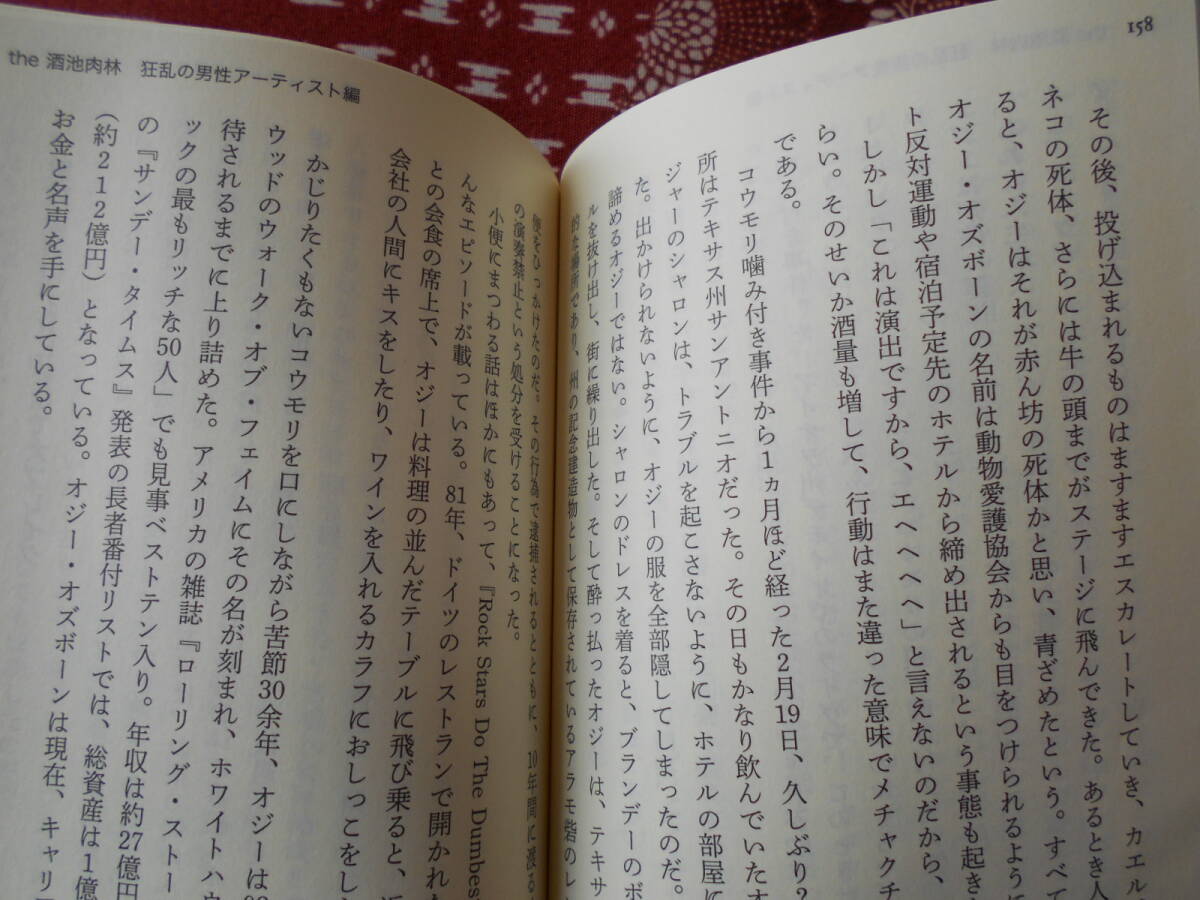 158
その後、投げ込まれるものはますますエスカレートしていき、カエル
ネコの死体、さらには牛の頭までがステージに飛んできた。あるとき人
ると、オジーはそれが赤ん坊の死体かと思い、青ざめたという。すべて
オジー・オズボーンの名前は動物愛護協会からも目をつけられるように
ト反対運動や宿泊予定先のホテルから締め出されるという事態も起き
しかし「これは演出ですから、エヘヘヘヘ」と言えないのだから、
らい。そのせいか酒量も増して、行動はまた違った意味でメチャクチ
である。
コウモリ噛み付き事件から1ヵ月ほど経った2月19日、久しぶり
所はテキサス州サンアントニオだった。その日もかなり飲んでいたオ
ジャーのシャロンは、トラブルを起こさないように、ホテルの部屋に
た。出かけられないように、オジーの服を全部隠してしまったのだ。
諦めるオジーではない。シャロンのドレスを着ると、ブランデーのボ
ルを抜け出し、街に繰り出した。そして酔っ払ったオジーは、テキサ
的な場所であり、州の記念建造物として保存されているアラモ砦の
the 酒池肉林 狂乱の男性アーティスト編
便をひっかけたのだ。その行為で逮捕されるとともに、10年間に渡る
の演奏禁止という処分を受けることになった。
小便にまつわる話はほかにもあって、『Rock Stars Do The Dumbes
んなエピソードが載っている。81年、ドイツのレストランで開かれ
との会食の席上で、オジーは料理の並んだテーブルに飛び乗ると、
会社の人間にキスをしたり、ワインを入れるカラフにおしっこをし
かじりたくもないコウモリを口にしながら苦節30余年、オジーは
ウッドのウォーク・オブ・フェイムにその名が刻まれ、ホワイトハウ
待されるまでに上り詰めた。アメリカの雑誌『ローリング・ストー
ックの最もリッチな50人」でも見事ベストテン入り。年収は約27億円
の『サンデー・タイムス』発表の長者番付リストでは、総資産は1億
（約212億円）となっている。オジー・オズボーンは現在、キャリ
お金と名声を手にしている。